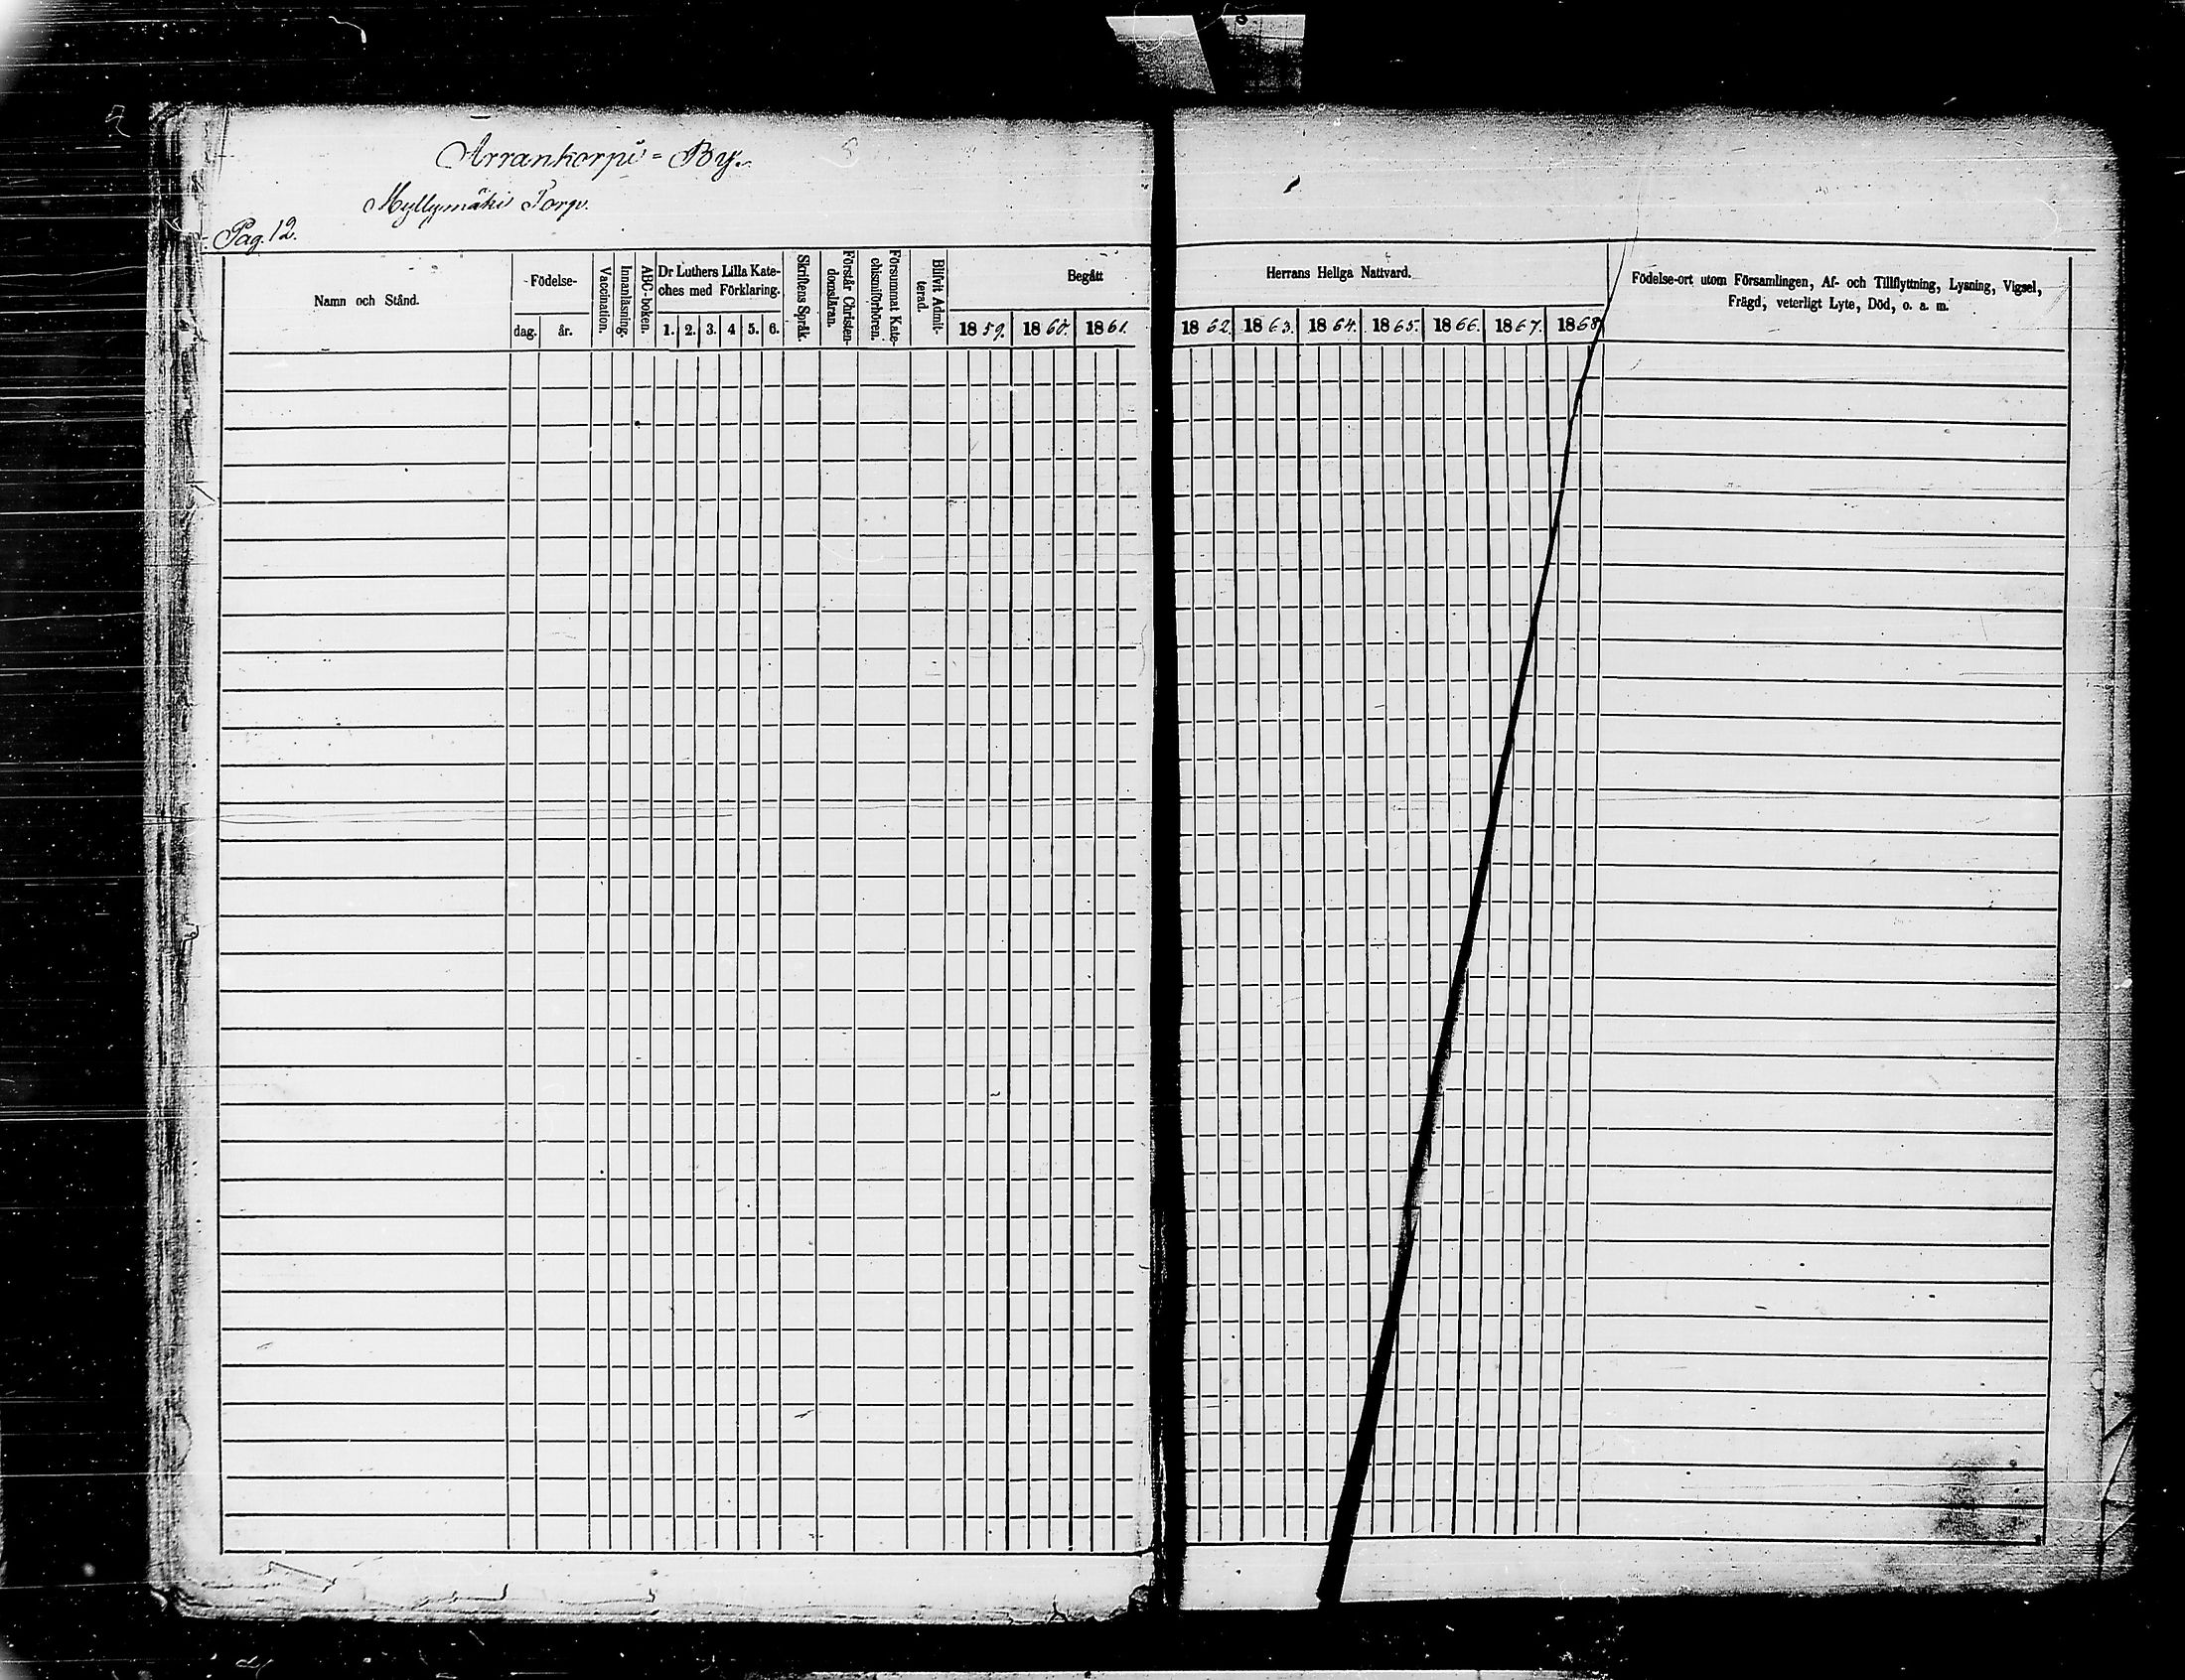 Arrankorpi=By.
Myllymäki Torp.
Pag. 12.
Namn och Stånd.
Födelse-
dag.
år.
Vaccination.
Innanläsning.
ABC-boken.
Dr Luthers Lilla Kate-
ches med Förklaring.
1. 2. 3. 4 5. 6.
Skriftens Språk.
Förstår Christen-
domsläran.
Försummat Kate-
chismiförhören.
Blifvit Admit-
terad.
Begått
1859. 1860. 1861.
Herrans Heliga Nattvard.
1862. 1863. 1864. 1865. 1866. 1867. 1868
Födelse-ort utom Församlingen, Af- och Tillflyttning, Lysning, Vigsel,
Frägd, veterligt Lyte, Död, o. a. m.